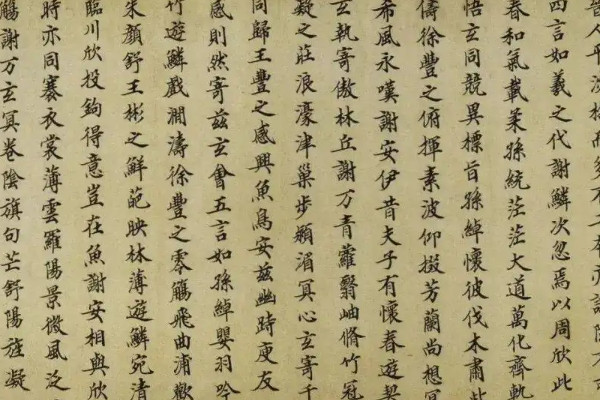 晉人平淡
四言如羲之代謝鱗次忽焉以周欣此
春和氣載柔孫統茫茫大道萬化齊軌
悟玄同競異標旨孫綽懷彼伐木肅此
儔徐豐之俯揮素波仰掇芳蘭尚想冥
希風永嘆謝安伊昔夫子有懷春遊契
玄執寄傲林丘謝万青蘿翳岫脩竹冠
凝之莊浪濠津巢步潁湄冥心玄寄千
同歸王豐之感興魚鳥安茲幽跱庾友
感則然寄茲玄會五言如孫綽嬰羽吟
竹遊鱗戲瀾濤徐豐之零觴飛曲浦歡
朱顏舒王彬之鮮葩映林薄遊鱗宛清
臨川欣投鉤得意豈在魚謝安相與欣
時亦同褰衣裳薄雲羅陽景微風泛
觴謝万玄冥卷陰旗句芒舒陽旌凝